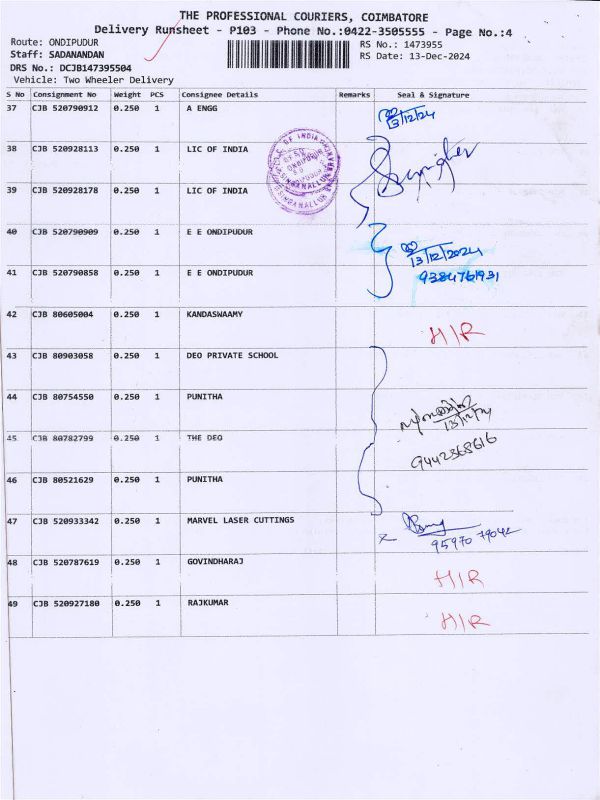 THE PROFESSIONAL COURIERS, COIMBATORE
Delivery Runsheet - P103 - Phone No.:0422-3505555 - Page No.:4
Route: ONDIPUDUR RS No.: 1473955
Staff: SADANANDAN RS Date: 13-Dec-2024
DRS No.: DCJB147395504
Vehicle: Two Wheeler Delivery
S No Consignment No Weight PCS Consignee Details Remarks Seal & Signature
37 CJB 520790912 0.250 1 A ENGG 13/12/24
38 CJB 520928113 0.250 1 LIC OF INDIA
39 CJB 520928178 0.250 1 LIC OF INDIA
40 CJB 520790909 0.250 1 E E ONDIPUDUR 13/12/2024
41 CJB 520790858 0.250 1 E E ONDIPUDUR 9384761931
42 CJB 80605004 0.250 1 KANDASWAAMY H/R
43 CJB 80903058 0.250 1 DEO PRIVATE SCHOOL
44 CJB 80754550 0.250 1 PUNITHA 13/12/24
45 CJB 80782799 0.250 1 THE DEO 9442368616
46 CJB 80521629 0.250 1 PUNITHA
47 CJB 520933342 0.250 1 MARVEL LASER CUTTINGS 95970 79042
48 CJB 520787619 0.250 1 GOVINDHARAJ H/R
49 CJB 520927180 0.250 1 RAJKUMAR H/R